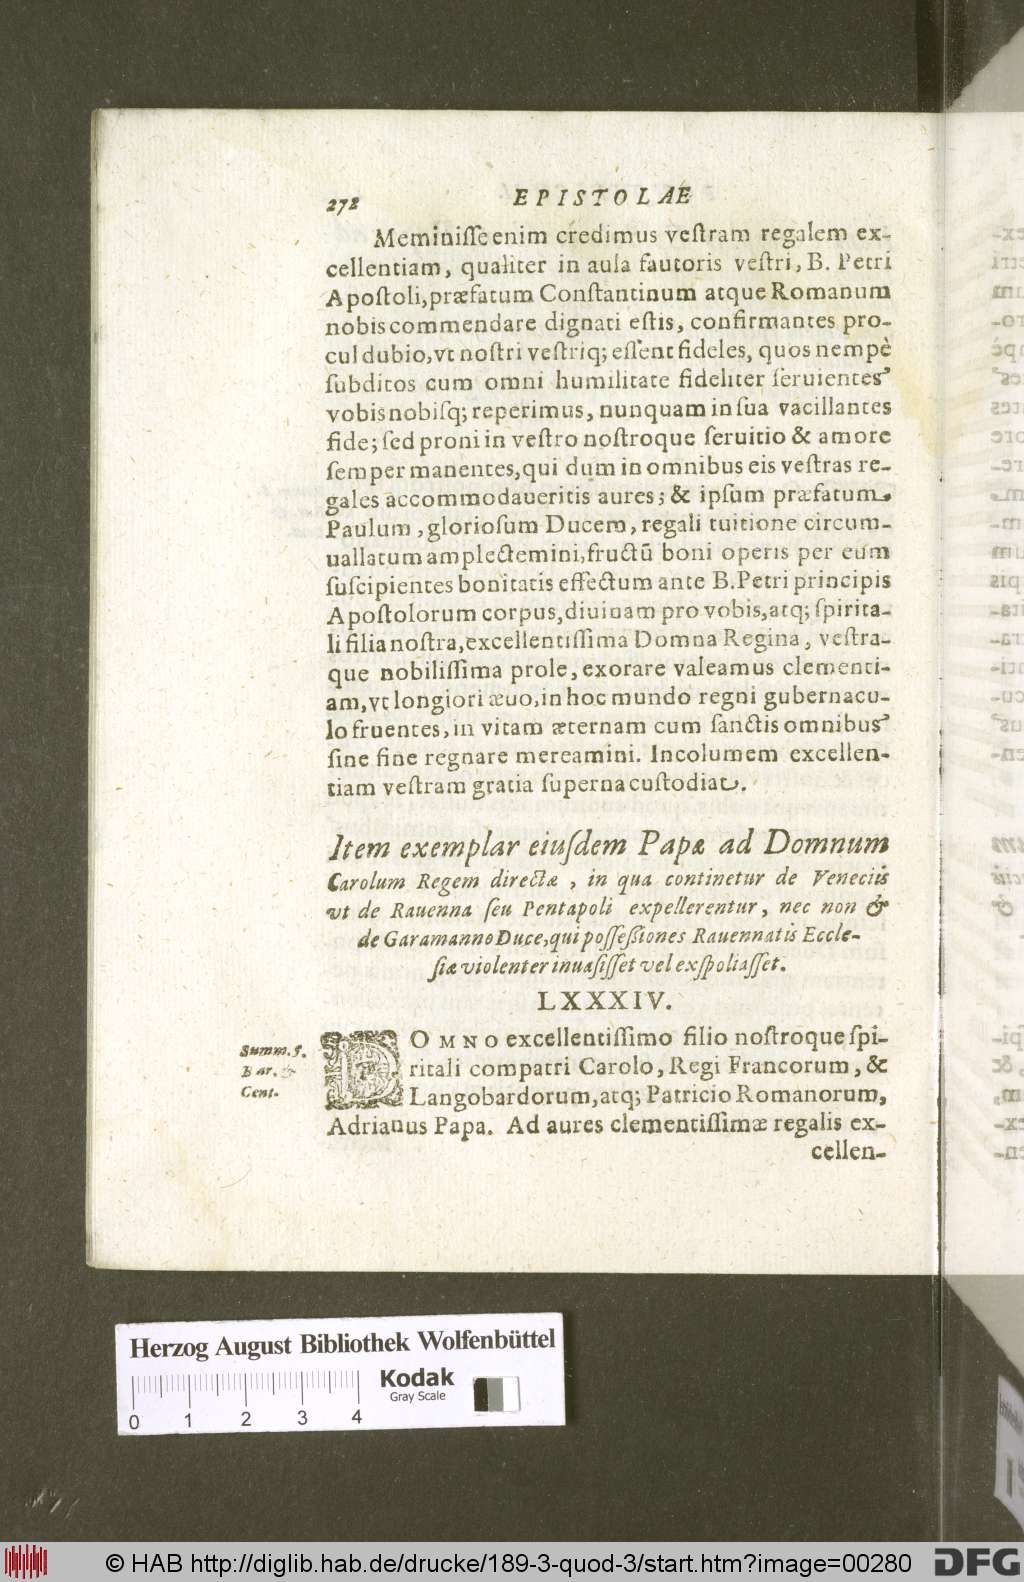 272 EPISTOLAE
Meminisse enim credimus vestram regalem ex-
cellentiam, qualiter in aula fautoris vestri, B. Petri
Apostoli, præfatum Constantinum atque Romanum
nobis commendare dignati estis, confirmantes pro-
cul dubio, vt nostri vestriq; essent fideles, quos nempè
subditos cum omni humilitate fideliter seruientes
vobis nobisq; reperimus, nunquam in sua vacillantes
fide; sed proni in vestro nostroque seruitio & amore
semper manentes, qui dum in omnibus eis vestras re-
gales accommodaueritis aures; & ipsum præfatum
Paulum, gloriosum Ducem, regali tuitione circum-
uallatum amplectemini, fructū boni operis per eum
suscipientes bonitatis effectum ante B. Petri principis
Apostolorum corpus, diuinam pro vobis, atq; spirita-
li filia nostra, excellentissima Domna Regina, vestra-
que nobilissima prole, exorare valeamus clementi-
am, vt longiori æuo, in hoc mundo regni gubernacu-
lo fruentes, in vitam æternam cum sanctis omnibus
sine fine regnare mereamini. Incolumem excellen-
tiam vestram gratia superna custodiat.
Item exemplar eiusdem Papæ ad Domnum
Carolum Regem directæ, in qua continetur de Veneciis
vt de Rauenna seu Pentapoli expellerentur, nec non &
de Garamanno Duce, qui possessiones Rauennatis Eccle-
siæ violenter inuasisset vel exspoliasset.
LXXXIV.
Summ. 5.
Bar. &
Cent.
DOMNO excellentissimo filio nostroque spi-
ritali compatri Carolo, Regi Francorum, &
Langobardorum, atq; Patricio Romanorum,
Adrianus Papa. Ad aures clementissimæ regalis ex-
cellen-
Herzog August Bibliothek Wolfenbüttel
Kodak
Gray Scale
0 1 2 3 4
© HAB http://diglib.hab.de/drucke/189-3-quod-3/start.htm?image=00280
DFG